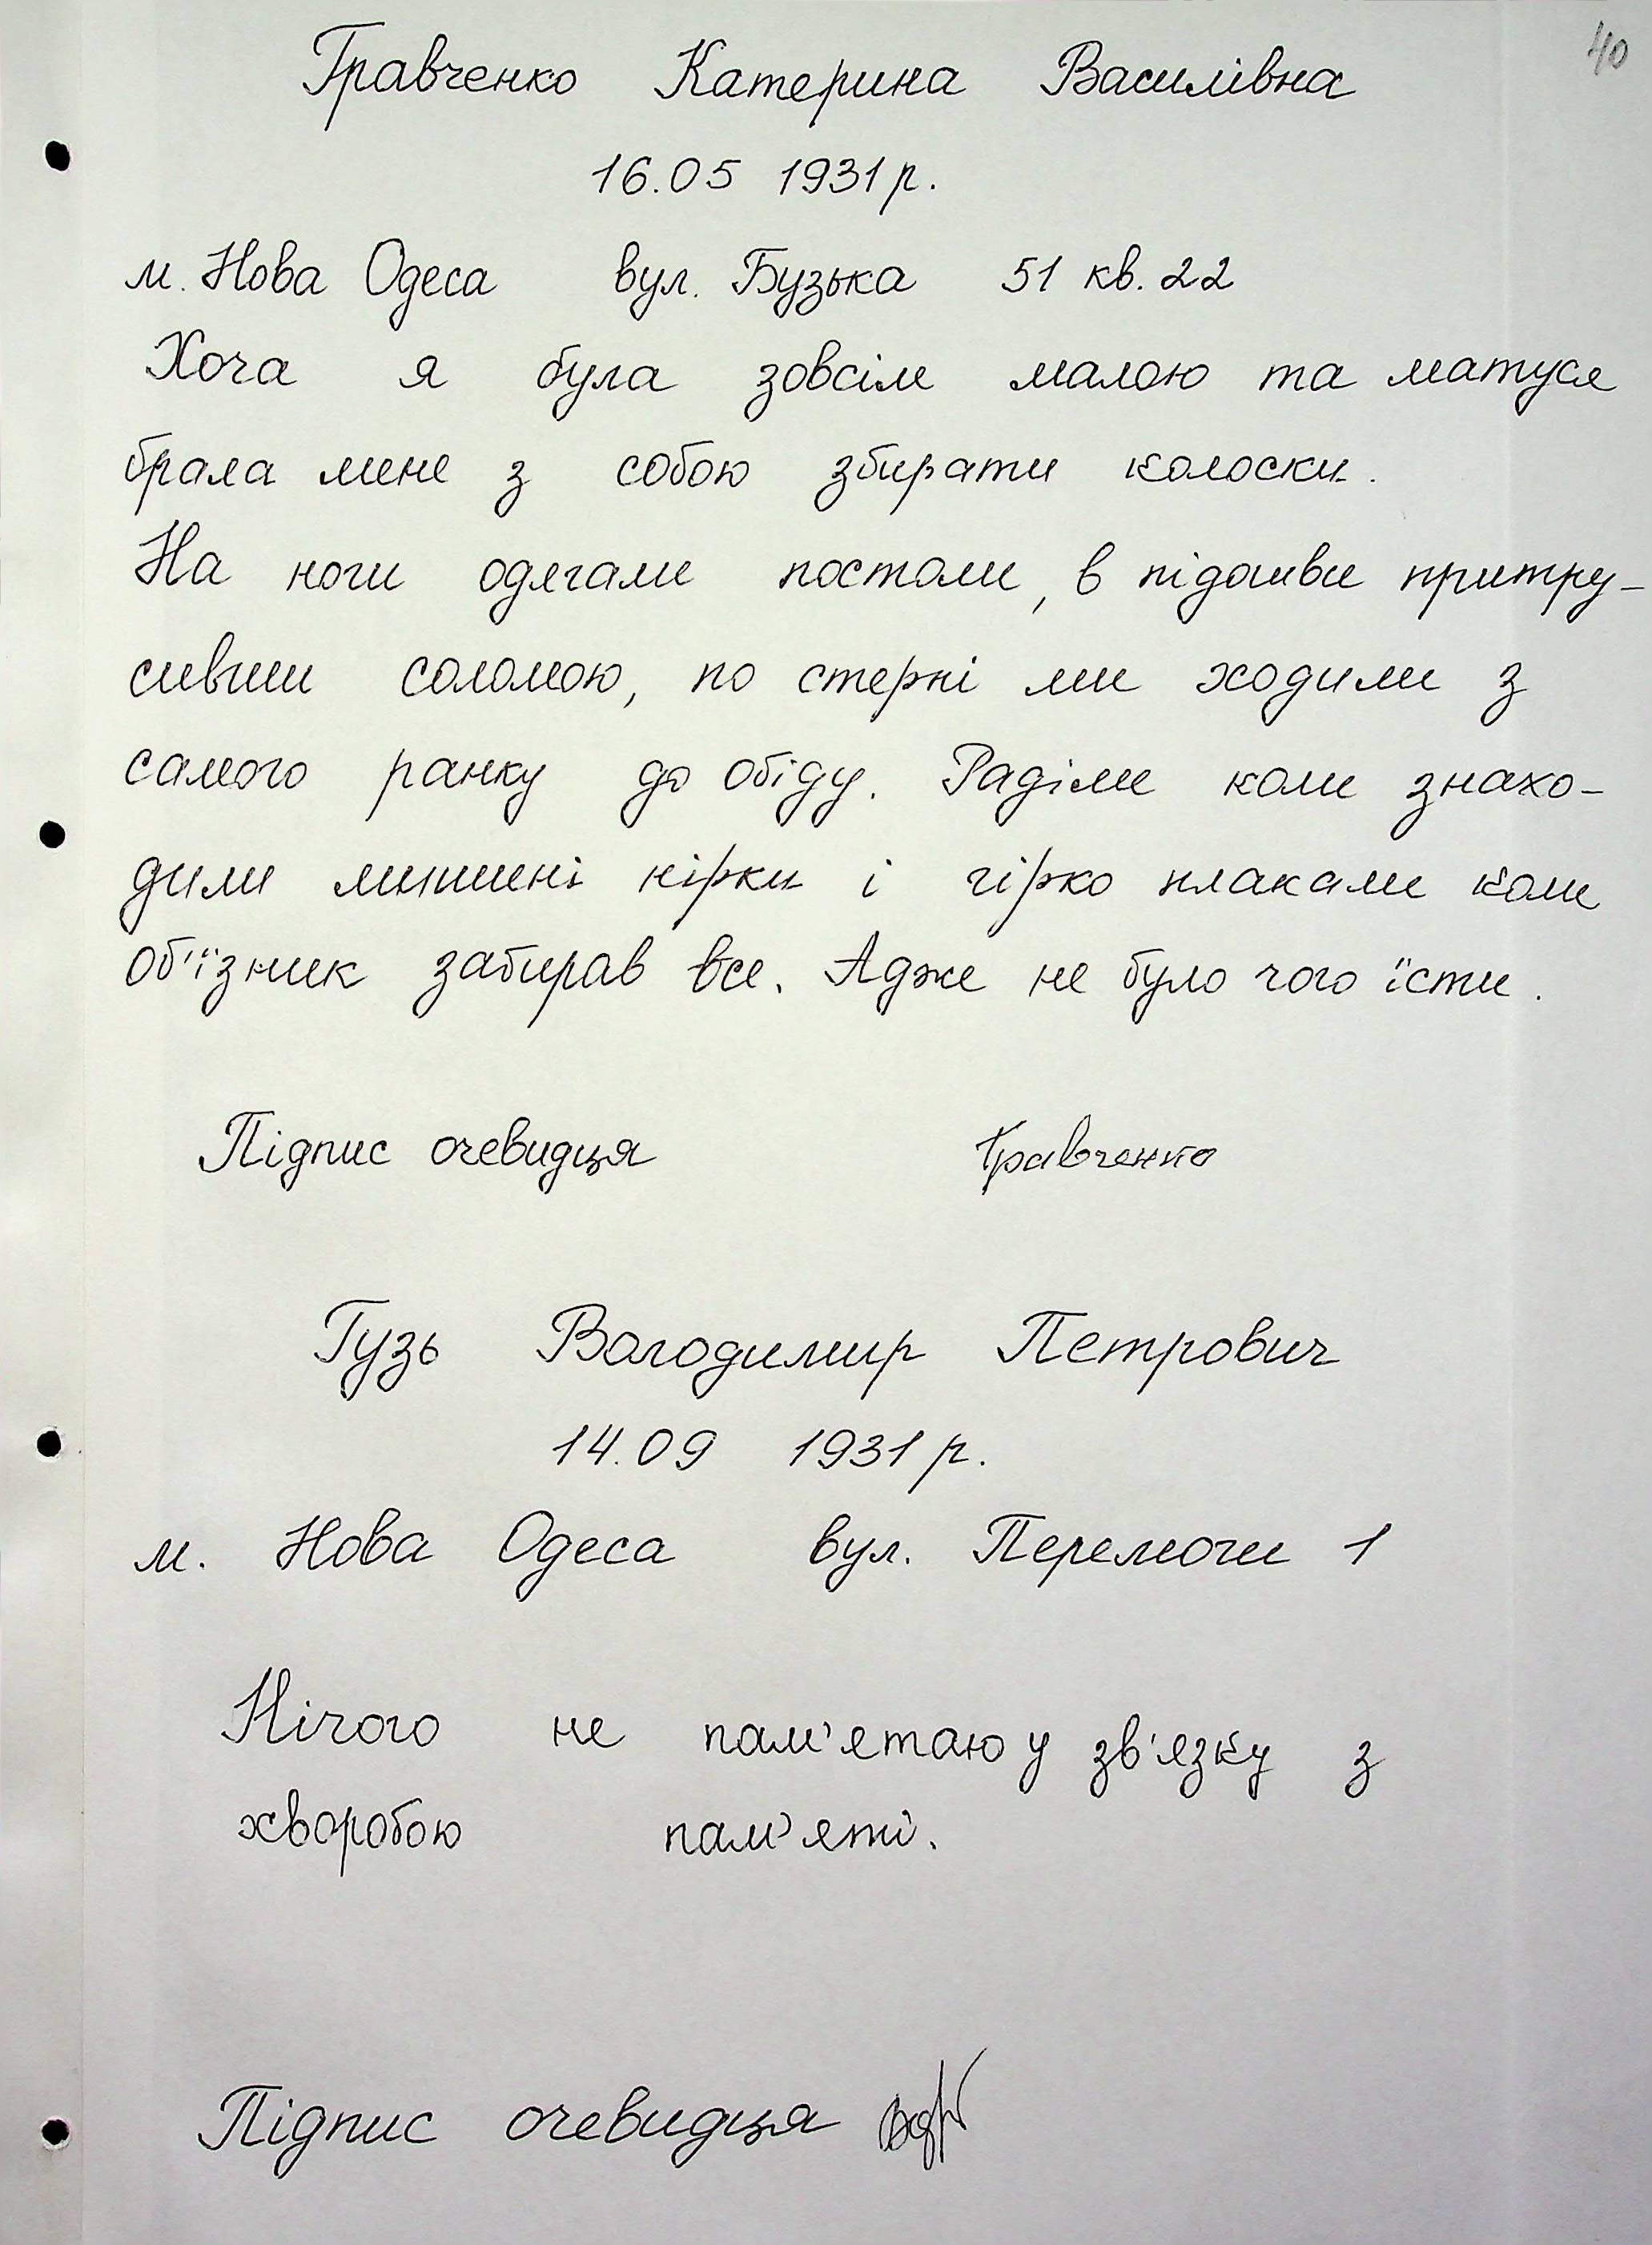 40
Гравченко Катерина Василівна
16.05 1931 р.
м. Нова Одеса вул. Бузька 51 кв. 22
Хоча я була зовсім малою та матуся
брала мене з собою збирати колоски.
На ноги одягали постоли, в підошви притру-
сивши соломою, по стерні ми ходили з
самого ранку до обіду. Раділи коли знахо-
дили мишині нірки і гірко плакали коли
об'їзник забирав все. Адже не було чого їсти.
Підпис очевидця Гравченко
Гузь Володимир Петрович
14.09 1931 р.
м. Нова Одеса вул. Перемоги 1
Нічого не пам'ятаю у зв'язку з
хворобою пам'яті.
Підпис очевидця